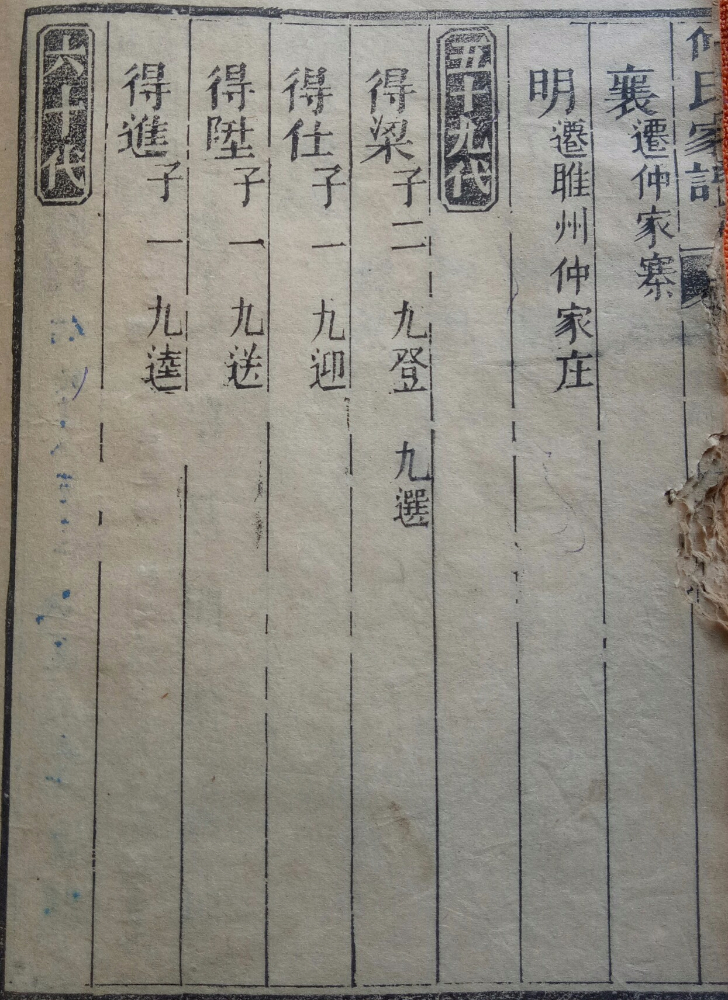 仲氏家譜
襄 遷仲家寨
明 遷睢州仲家庄
五十九代
得梁 子二 九登 九選
得仕 子一 九迎
得陞 子一 九送
得進 子一 九逵
六十代